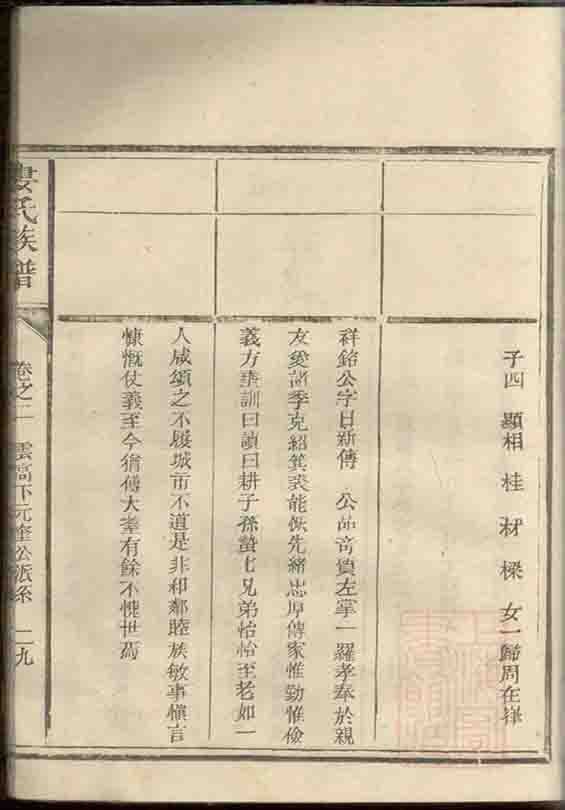 子四 顯相 桂 材 樑 女一歸周在
祥銘公字日新傳 公品奇 左掌一羅孝奉於親
友愛諸季克紹箕裘能恢先緒忠厚傳家惟勤惟儉
義方垂訓曰讀曰耕子孫蟄七兄弟怡怡至老如一
人咸頌之不履城市不道是非和鄰睦族敏事慎言
慷慨仗義至今猶傳大耋有餘不愧世焉
婁氏族譜
卷之二 雲高下元奎公派系 二九